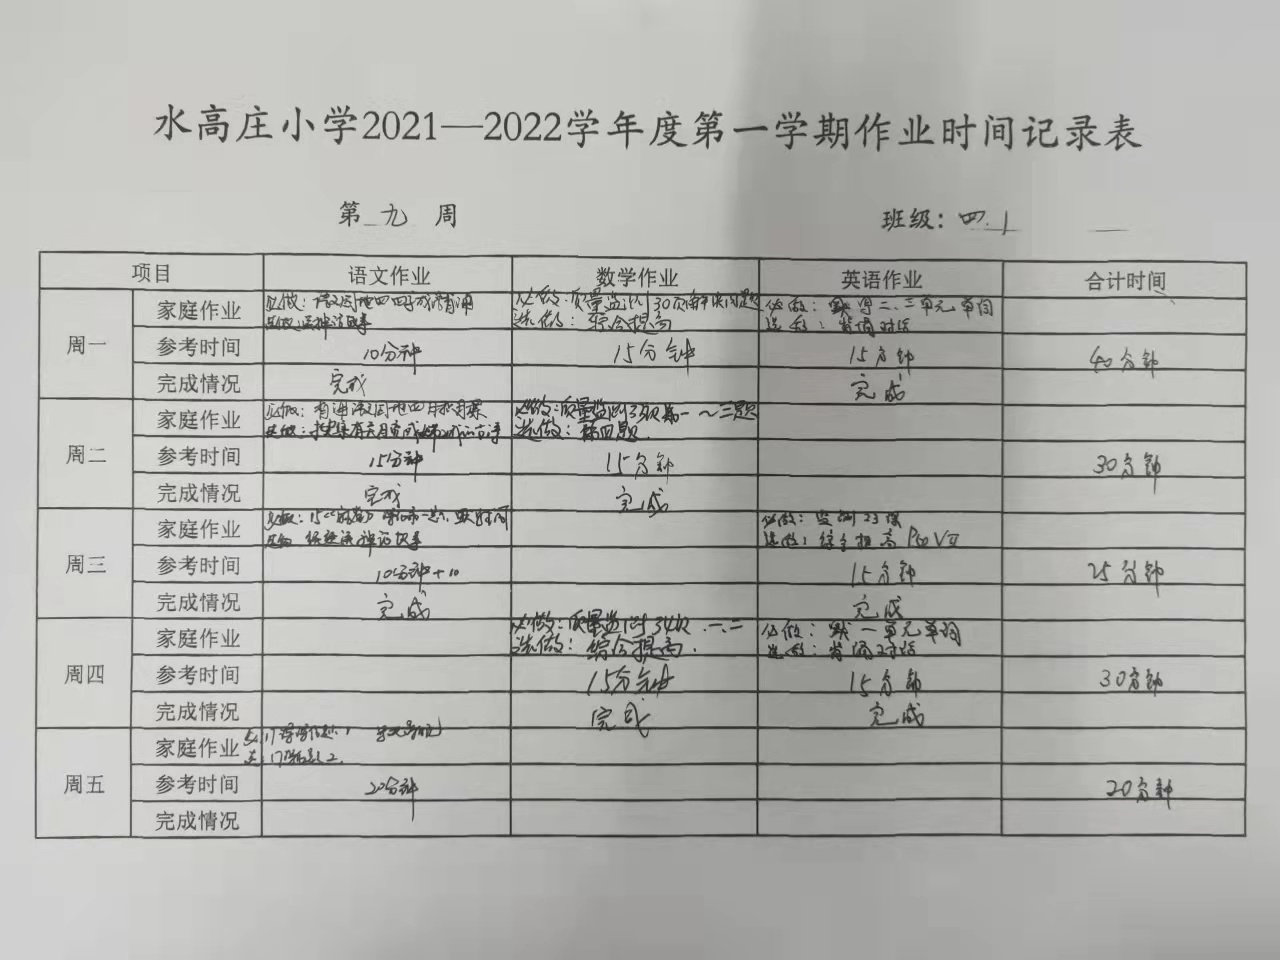 水高庄小学2021—2022学年度第一学期作业时间记录表
第 九 周 班级：四.1
项目 语文作业 数学作业 英语作业 合计时间
周一
家庭作业 必做：语文园地四 必做：质量监测30页解决问题 必做：默写二、三单元单词
选做：神话故事 选做：综合提高 选做：背诵对话
参考时间 10分钟 15分钟 15分钟 40分钟
完成情况 完成 完成
周二
家庭作业 必做：语文园地四 必做：质量监测 第一～三题
选做： 选做：第四题.
参考时间 15分钟 15分钟 30分钟
完成情况 完成 完成
周三
家庭作业 必做：15 必做：监测23课
选做： 选做：综合提高
参考时间 10分钟+10 15分钟 25分钟
完成情况 完成 完成
周四
家庭作业 必做：质量监测34页 一.二 必做：默一单元单词
选做：综合提高. 选做：背诵对话
参考时间 15分钟 15分钟 30分钟
完成情况 完成 完成
周五
家庭作业
参考时间 20分钟 20分钟
完成情况